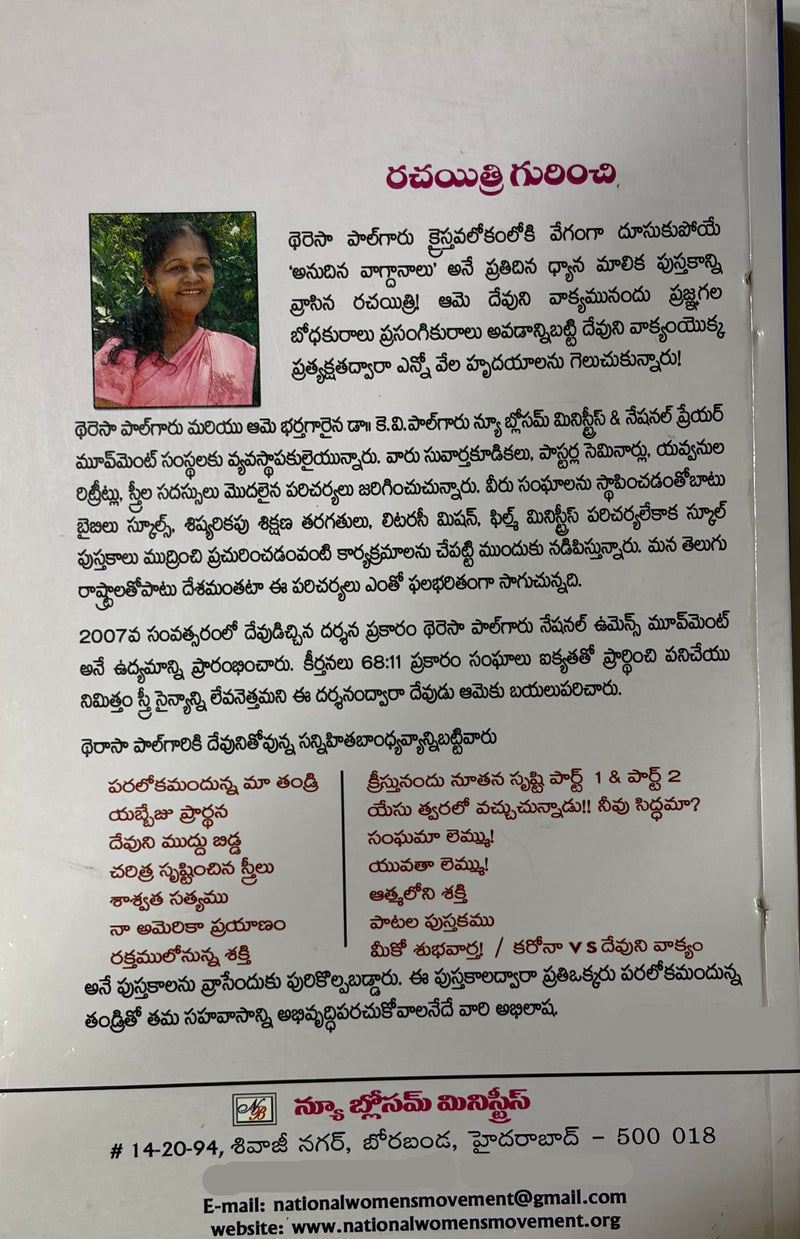 రచయిత్రి గురించి
థెరెసా పాల్‌గారు క్రైస్తవలోకంలోకి వేగంగా దూసుకుపోయే
'అనుదిన వాగ్దానాలు' అనే ప్రతిదిన ధ్యాన మాలిక పుస్తకాన్ని
వ్రాసిన రచయిత్రి! ఆమె దేవుని వాక్యమునందు ప్రజ్ఞగల
బోధకురాలు ప్రసంగికురాలు అవడాన్నిబట్టి దేవుని వాక్యంయొక్క
ప్రత్యక్షతద్వారా ఎన్నో వేల హృదయాలను గెలుచుకున్నారు!
థెరెసా పాల్‌గారు మరియు ఆమె భర్తగారైన డా॥ కె.వి.పాల్‌గారు న్యూ బ్లోసమ్ మినిస్ట్రీస్ & నేషనల్ ప్రేయర్
మూవ్‌మెంట్ సంస్థలకు వ్యవస్థాపకులైయున్నారు. వారు సువార్తకూడికలు, పాస్టర్ల సెమినార్లు, యవ్వనుల
రిట్రీట్లు, స్త్రీల సదస్సులు మొదలైన పరిచర్యలు జరిగించుచున్నారు. వీరు సంఘాలను స్థాపించడంతోబాటు
బైబిలు స్కూల్స్, శిష్యరికపు శిక్షణ తరగతులు, లిటరసీ మిషన్, ఫిల్మ్ మినిస్ట్రీస్ పరిచర్యలేకాక స్కూల్
పుస్తకాలు ముద్రించి ప్రచురించడంవంటి కార్యక్రమాలను చేపట్టి ముందుకు నడిపిస్తున్నారు. మన తెలుగు
రాష్ట్రాలతోపాటు దేశమంతటా ఈ పరిచర్యలు ఎంతో ఫలభరితంగా సాగుచున్నది.
2007వ సంవత్సరంలో దేవుడిచ్చిన దర్శన ప్రకారం థెరెసా పాల్‌గారు నేషనల్ ఉమెన్స్ మూవ్‌మెంట్
అనే ఉద్యమాన్ని ప్రారంభించారు. కీర్తనలు 68:11 ప్రకారం సంఘాలు ఐక్యతతో ప్రార్థించి పనిచేయు
నిమిత్తం స్త్రీ సైన్యాన్ని లేవనెత్తమని ఈ దర్శనంద్వారా దేవుడు ఆమెకు బయలుపరిచారు.
థెరాసా పాల్‌గారికి దేవునితోవున్న సన్నిహితబాంధ్యవ్యాన్నిబట్టివారు
పరలోకమందున్న మా తండ్రి
యబ్బేజు ప్రార్థన
దేవుని ముద్దు బిడ్డ
చరిత్ర సృష్టించిన స్త్రీలు
శాశ్వత సత్యము
నా అమెరికా ప్రయాణం
రక్తములోనున్న శక్తి
క్రీస్తునందు నూతన సృష్టి పార్ట్ 1 & పార్ట్ 2
యేసు త్వరలో వచ్చుచున్నాడు!! నీవు సిద్ధమా?
సంఘమా లెమ్ము!
యువతా లెమ్ము!
ఆత్మలోని శక్తి
పాటల పుస్తకము
మీకో శుభవార్త! / కరోనా vs దేవుని వాక్యం
అనే పుస్తకాలను వ్రాసేందుకు పురికొల్పబడ్డారు. ఈ పుస్తకాలద్వారా ప్రతిఒక్కరు పరలోకమందున్న
తండ్రితో తమ సహవాసాన్ని అభివృద్ధిపరచుకోవాలనేదే వారి అభిలాష.
NB న్యూ బ్లోసమ్ మినిస్ట్రీస్
# 14-20-94, శివాజీ నగర్, బోరబండ, హైదరాబాద్ - 500 018
E-mail: nationalwomensmovement@gmail.com
website: www.nationalwomensmovement.org